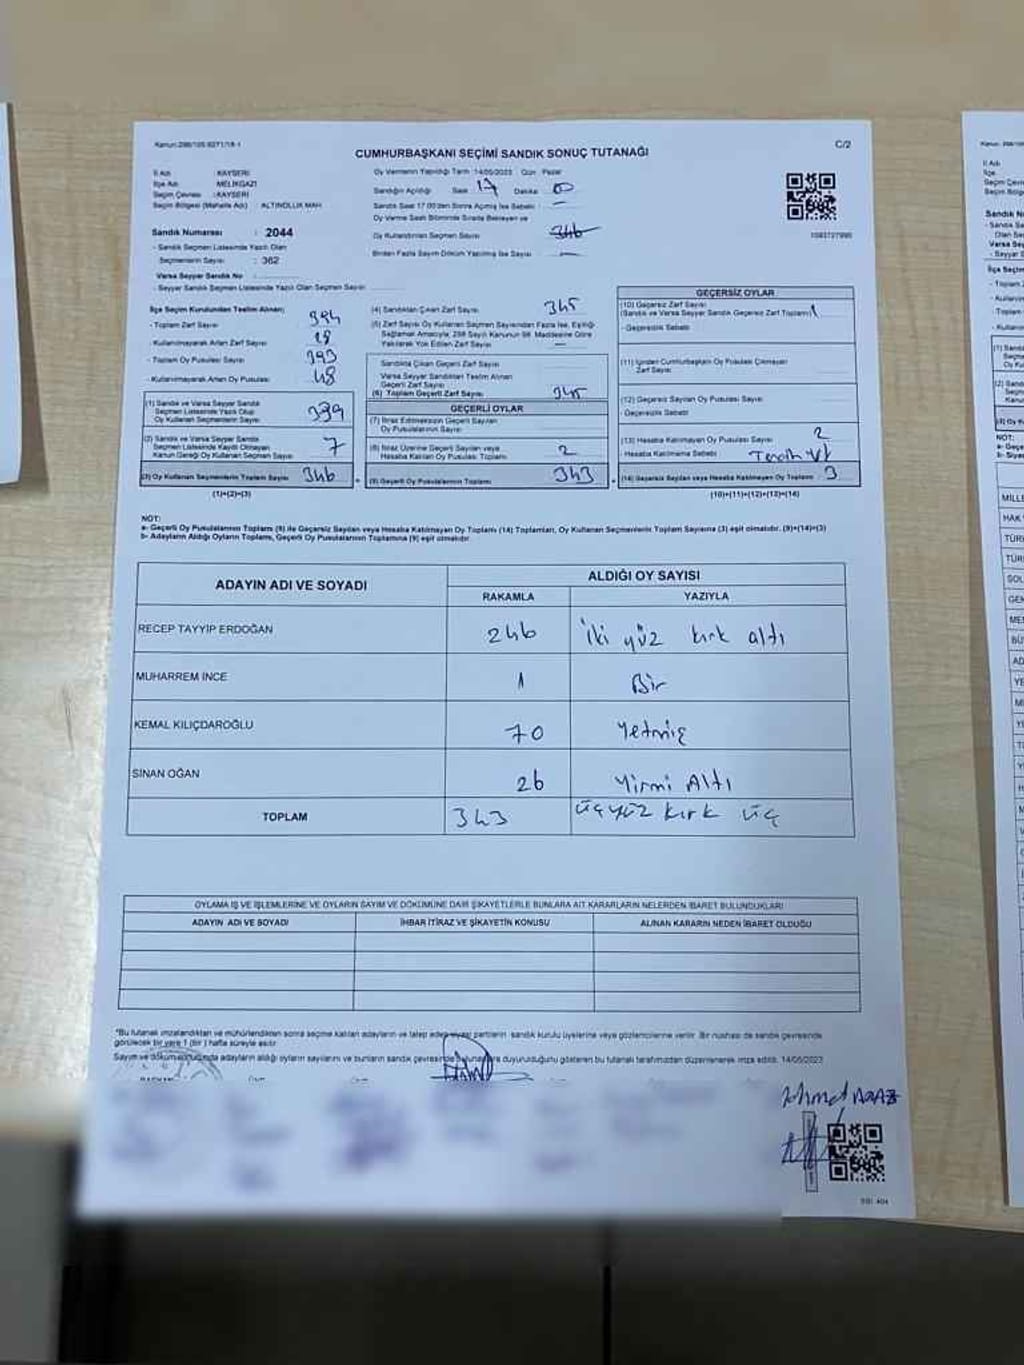 C/2
CUMHURBAŞKANI SEÇİMİ SANDIK SONUÇ TUTANAĞI
İl Adı : KAYSERİ
İlçe Adı : MELİKGAZİ
Seçim Çevresi : KAYSERİ
Seçim Bölgesi (Mahalle Adı) : ALTINOLUK MAH.
Sandık Numarası : 2044
- Sandık Seçmen Listesinde Yazılı Olan
Seçmenlerin Sayısı : 362
Varsa Seyyar Sandık No :
- Seyyar Sandık Seçmen Listesinde Yazılı Olan Seçmen Sayısı :
Oy Vermenin Yapıldığı Tarih : 14/05/2023 Gün : Pazar
Sandığın Açıldığı Saat 17 Dakika 00
Sandık Saat 17.00'den Sonra Açılmış İse Sebebi : —
Oy Verme Saati Bitiminde Sırada Bekleyen ve
Oy Kullandırılan Seçmen Sayısı : 346
Birden Fazla Sayım Döküm Yapılmış İse Sayısı : —
İlçe Seçim Kurulundan Teslim Alınan:
- Toplam Zarf Sayısı
- Kullanılmayarak Artan Zarf Sayısı
- Toplam Oy Pusulası Sayısı 393
- Kullanılmayarak Artan Oy Pusulası : 48
(1) Sandık ve Varsa Seyyar Sandık
Seçmen Listesinde Yazılı Olup
Oy Kullanan Seçmenlerin Sayısı : 339
(2) Sandık ve Varsa Seyyar Sandık
Seçmen Listesinde Kayıtlı Olmayan
Kanun Gereği Oy Kullanan Seçmen Sayısı : 7
(3) Oy Kullanan Seçmenlerin Toplam Sayısı : 346
(1)+(2)=(3)
(4) Sandıktan Çıkan Zarf Sayısı : 345
(5) Zarf Sayısı Oy Kullanan Seçmen Sayısından Fazla İse, Eşitliği
Sağlamak Amacıyla, 298 Sayılı Kanunun 98. Maddesine Göre
Yakılarak Yok Edilen Zarf Sayısı : —
Sandıkta Çıkan Geçerli Zarf Sayısı :
Varsa Seyyar Sandıktan Teslim Alınan
Geçerli Zarf Sayısı :
(6) Toplam Geçerli Zarf Sayısı : 345
GEÇERLİ OYLAR
(7) İtiraz Edilmeksizin Geçerli Sayılan
Oy Pusulalarının Sayısı :
(8) İtiraz Üzerine Geçerli Sayılan veya
Hesaba Katılan Oy Pusulası Toplamı : 2
(9) Geçerli Oy Pusulalarının Toplamı : 343
GEÇERSİZ OYLAR
(10) Geçersiz Zarf Sayısı
(Sandık ve Varsa Seyyar Sandık Geçersiz Zarf Toplamı) : 1
- Geçersizlik Sebebi :
(11) İçinden Cumhurbaşkanı Oy Pusulası Çıkmayan
Zarf Sayısı :
(12) Geçersiz Sayılan Oy Pusulası Sayısı :
- Geçersizlik Sebebi :
(13) Hesaba Katılmayan Oy Pusulası Sayısı : 2
- Hesaba Katılmama Sebebi : Tercih yok
(14) Geçersiz Sayılan veya Hesaba Katılmayan Oy Toplamı : 3
(10)+(11)+(12)+(13)=(14)
NOT:
a- Geçerli Oy Pusulalarının Toplamı (9) ile Geçersiz Sayılan veya Hesaba Katılmayan Oy Toplamı (14) Toplamları, Oy Kullanan Seçmenlerin Toplam Sayısına (3) eşit olmalıdır. (9)+(14)=(3)
b- Adayların Aldığı Oyların Toplamı, Geçerli Oy Pusulalarının Toplamına (9) eşit olmalıdır.
ADAYIN ADI VE SOYADI
ALDIĞI OY SAYISI
RAKAMLA YAZIYLA
RECEP TAYYİP ERDOĞAN 246 iki yüz kırk altı
MUHARREM İNCE 1 Bir
KEMAL KILIÇDAROĞLU 70 Yetmiş
SİNAN OĞAN 26 Yirmi Altı
TOPLAM 343 üçyüz kırk üç
OYLAMA İŞ VE İŞLEMLERİNE VE OYLARIN SAYIM VE DÖKÜMÜNE DAİR ŞİKAYETLERLE BUNLARA AİT KARARLARIN NELERDEN İBARET BULUNDUKLARI
ADAYIN ADI VE SOYADI İHBAR İTİRAZ VE ŞİKAYETİN KONUSU ALINAN KARARIN NEDEN İBARET OLDUĞU
*Bu tutanak imzalandıktan ve mühürlendikten sonra seçime katılan adayların ve talep eden siyasi partilerin sandık kurulu üyelerine veya gözlemcilerine verilir. Bir nüshası da sandık çevresinde
görülecek bir yere 1 (bir) hafta süreyle asılır.
Sayım ve dökümü adayların aldığı oyların sayılarını ve bunların sandık çevresinde duyurulduğunu gösteren bu tutanak tarafımızdan düzenlenerek imza edildi. 14/05/2023
Ahmet